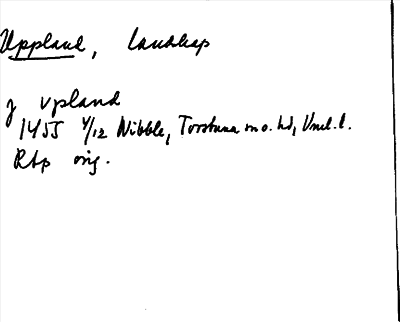 Uppland, landskap
J vpland
1455 4/12 Nibble, Torstuna sn o. hd, Vml. l.
RAp orig.